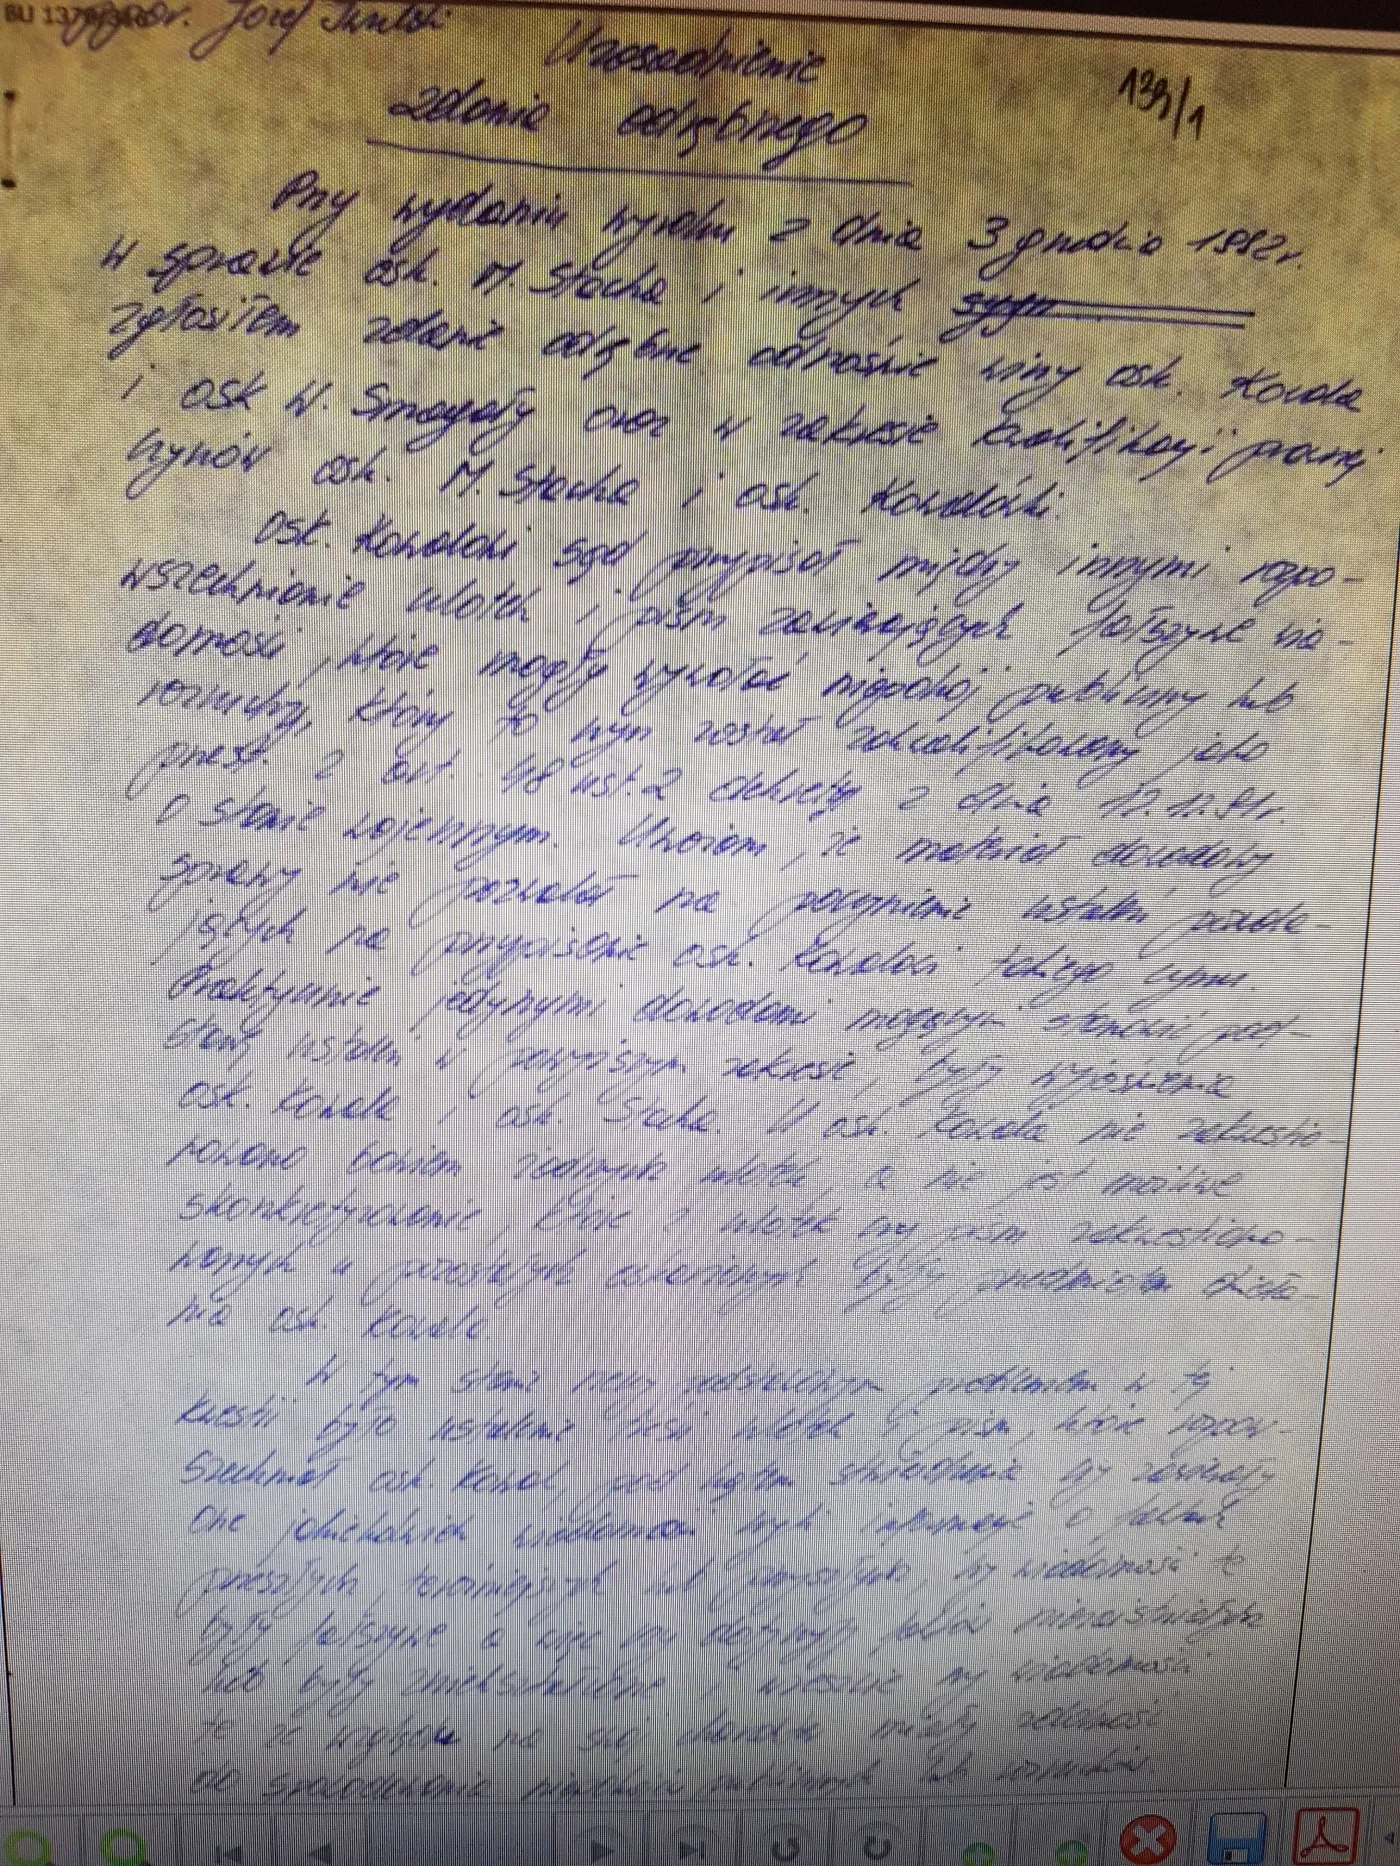 BU 137
Józef
Uzasadnienie
139/1
zdania odrębnego
Przy wydaniu wyroku z dnia 3 grudnia 1982r.
w sprawie osk. M. Stacha i innych sygn
zgłosiłem zdanie odrębne odnośnie winy osk. Kowala
i osk W. Smagały oraz w zakresie kwalifikacji prawnej
czynów osk. M. Stacha i osk.
Osk. sąd przypisał między innymi rozpo-
wszechnianie ulotek i pism zawierających fałszywe wia-
domości, które mogły wywołać niepokój publiczny lub
rozruchy, który to czyn został zakwalifikowany jako
przest. z art. 48 ust. 2 dekretu z dnia 12.12.81r.
o stanie wojennym. Uważam, że materiał dowodowy
sprawy nie pozwalał na poczynienie ustaleń pozwala-
jących na przypisanie osk. takiego czynu.
Praktycznie jedynymi dowodami mogącymi stanowić pod-
stawę ustaleń w powyższym zakresie, były wyjaśnienia
osk. Kowala i osk. Stacha. U osk. Kowala nie zakwestio-
nowano bowiem żadnych ulotek, a nie jest możliwe
skonkretyzowanie, które z ulotek czy pism zakwestiono-
wanych u pozostałych oskarżonych były przedmiotem działa-
nia osk. Kowala.
W tym stanie rzeczy podstawowym problemem w tej
kwestii było ustalenie treści ulotek i pism, które rozpow-
szechniał osk. Kowal, pod kątem stwierdzenia czy zawierały
one jakichkolwiek wiadomości czyli informacje o faktach
przeszłych, teraźniejszych lub przyszłych, czy wiadomości te
były fałszywe a więc czy dotyczyły faktów nieistniejących
lub były zniekształcone i wreszcie czy wiadomości
te ze względu na swój charakter miały zdolność
do spowodowania niepokoju publicznego lub rozruchów.